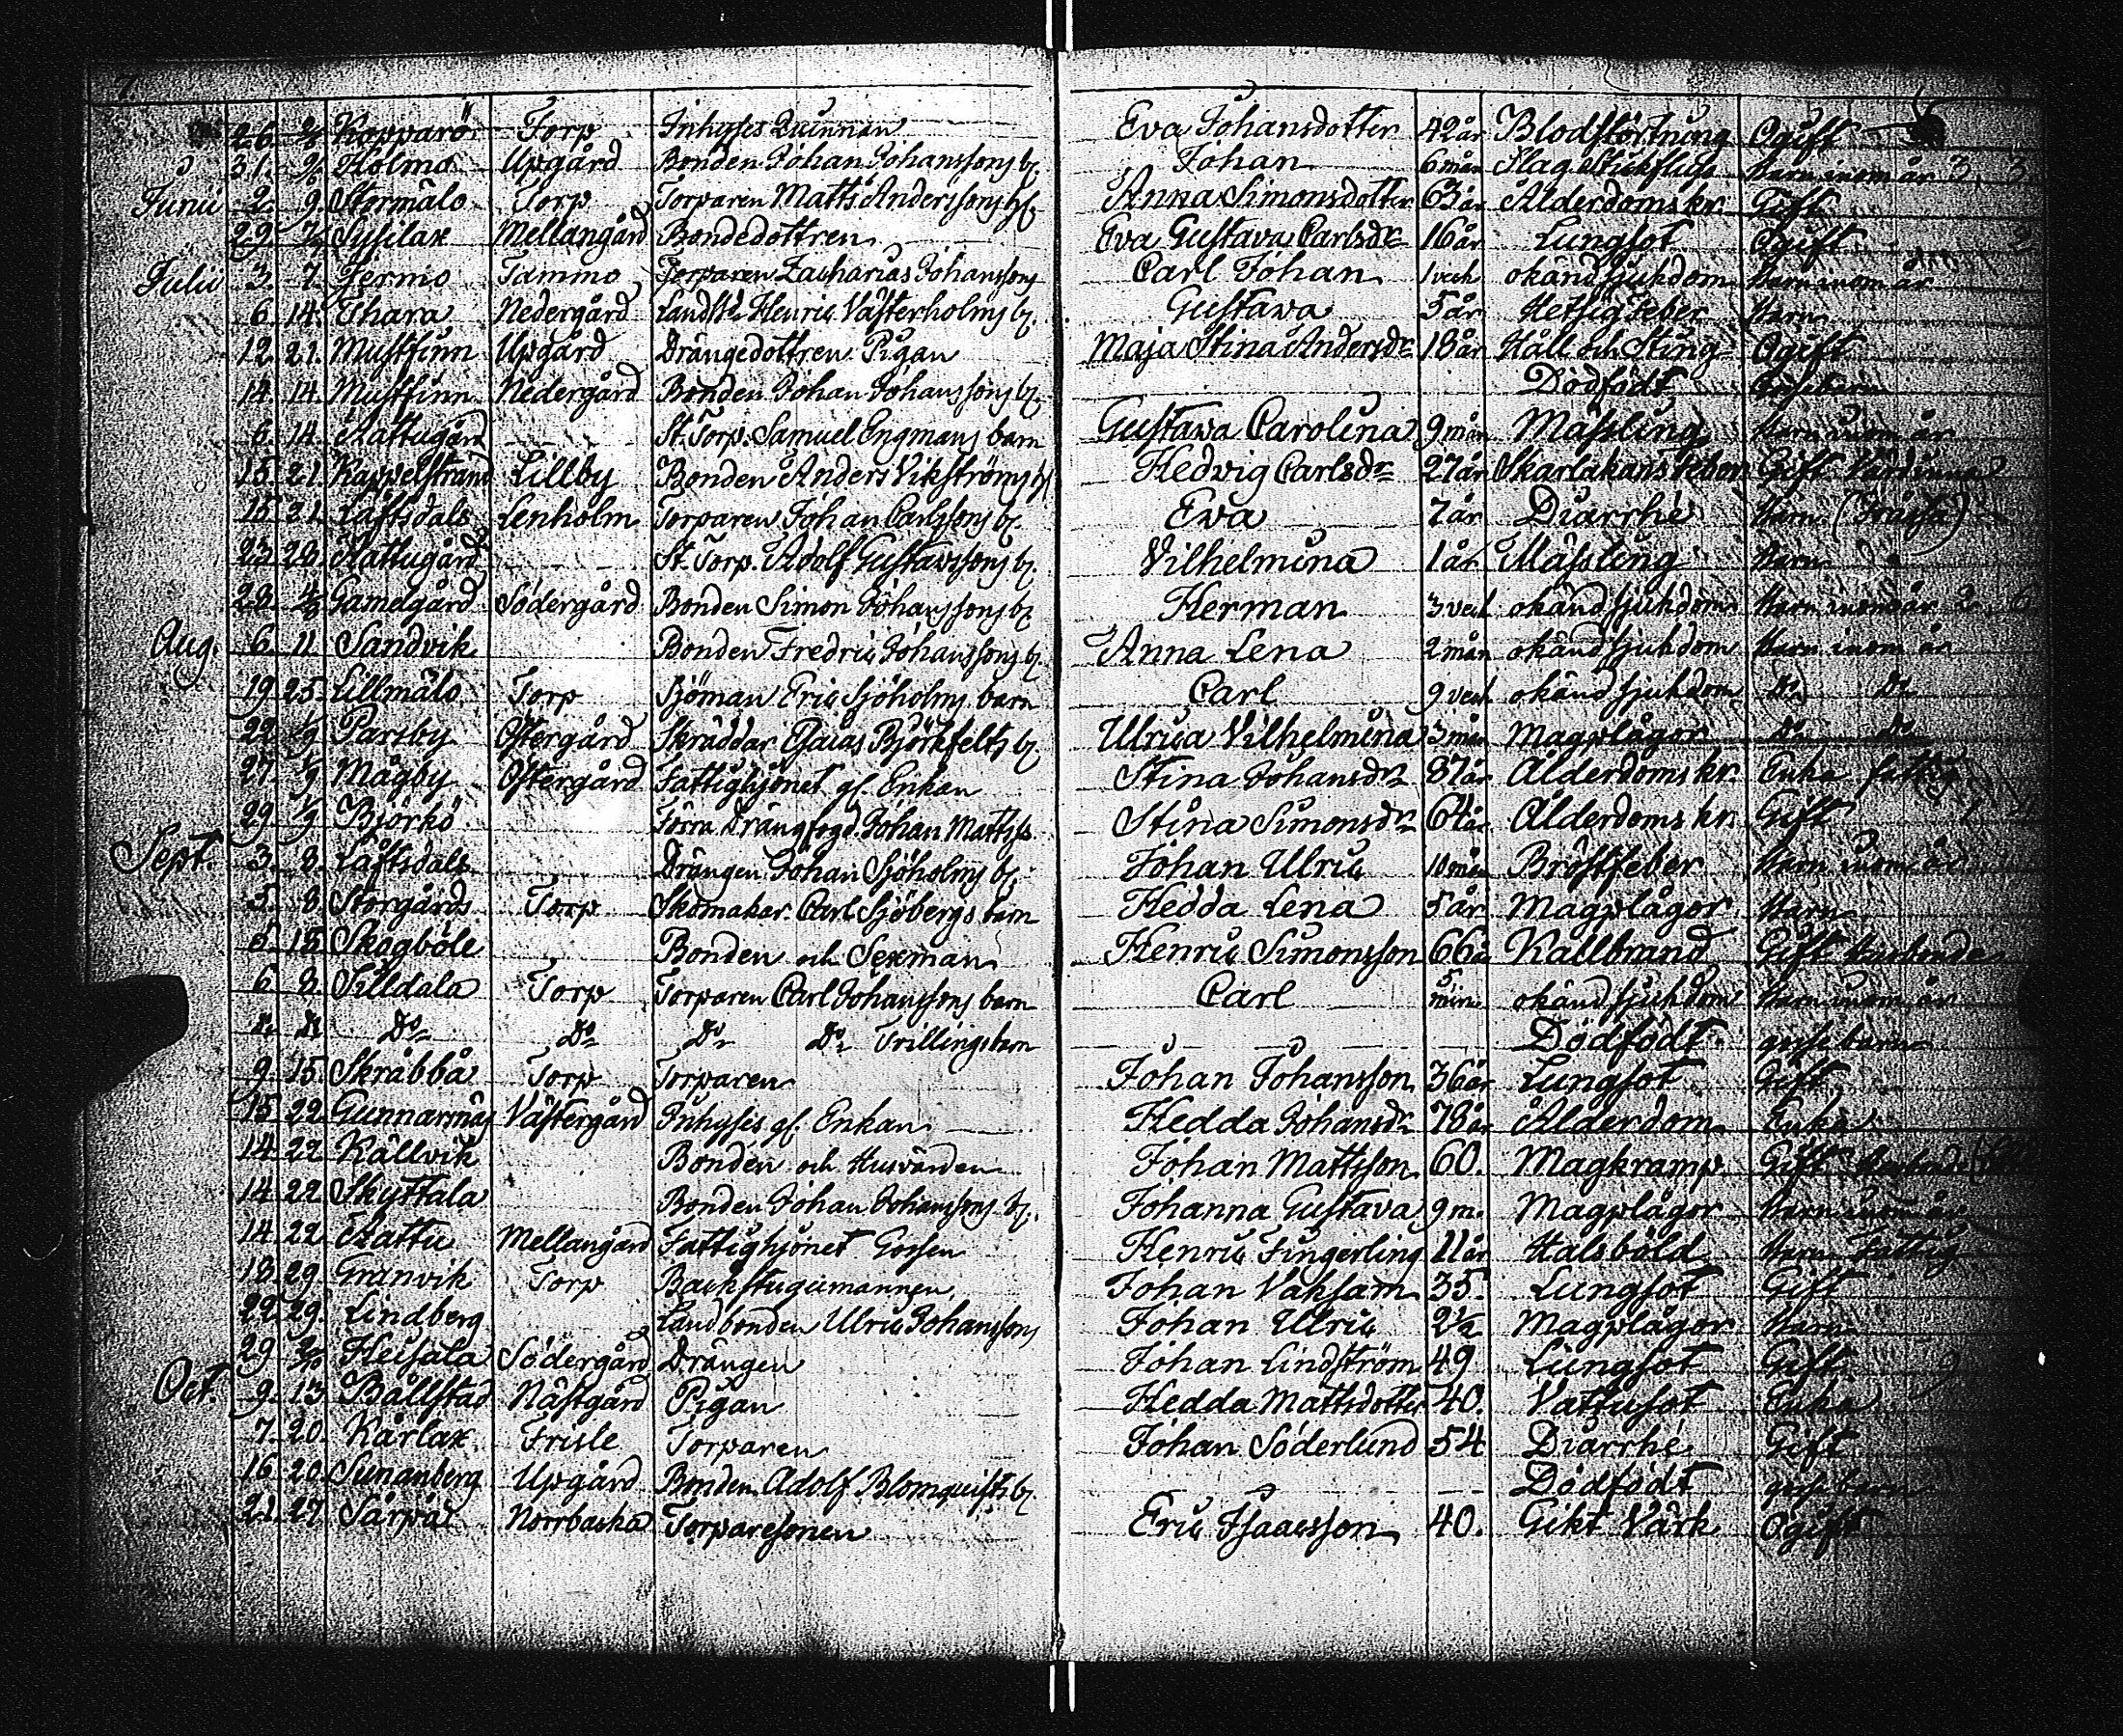 7
26. Kopparö Torp Inhyses Quinnan Eva Johansdotter 42 år Blodstörtning Ogift
31. Holmo Upgård Bonden Johan Johanssons b. Johan 6 mån Slag Barn inom år 3, 3
Junii 2. 9. Stormälo Torp Torparen Matts Anderssons Anna Simonsdotter 63 år Ålderdoms kr. Gift
29. Sysilax Mellangård Bondedottren Eva Gustava Carlsdr 16 år Lungsot Ogift 2
Julii 3. 7. Jermo Tammo Torparen Zacharias Johanssons Carl Johan 1 veck okänd sjukdom Barn inom år
6. 14. Thara Nedergård Henric Västerholms b. Gustava 5 år Hetsig Feber Barn
12. 21. Mustfinn Upgård Drängedottren Pigan Maja Stina Andersdr 18 år Håll och Sting Ogift
14. 14. Mustfinn Nedergård Bonden Johan Johanssons b. Dödfödt
6. 14. Attugård St. Torp. Samuel Engmans barn Gustava Carolina 9 mån Mässling Barn inom år
15. 21. Kappelstrand Lillby Bonden Anders Vikströms Hedvig Carlsdr 27 år Skarlakans Feber Gift Värdinna
15. 21. Låftsdals Lenholm Torparen Johan Carlssons b. Eva 7 år Diarrhé Barn
23. 28. Attugård St. Torp. Adolf Gustavssons b. Vilhelmina 1 år Mässling Barn
28. 4/8 Gamelgård Södergård Bonden Simon Johanssons b. Herman 3 veck okänd sjukdom Barn inom år 2, 6
Aug. 6. 11 Sandvik Bonden Fredric Johanssons b. Anna Lena 2 mån okänd sjukdom Barn inom år
19. 25. Lillmälo Torp Sjöman Eric Sjöholms barn Carl 9 veck okänd sjukdom Do Do
22. 1/9 Parsby Östergård Skräddar Esaias Björkfelts b. Ulrica Vilhelmina 3 mån Magplågor do do
27. 1/9 Mågby Östergård Fattighjonet gl. Enkan Stina Johansdr 87 år Ålderdoms kr. Enka fattig
29 1/9 Björkö Förra Drängfogd. Johan Matts Stina Simonsdr 64 år Ålderdoms kr. Gift
Sept. 3. 8. Låftsdals Drängen Johan Sjöholms b. Johan Ulric 10 mån Bröstfeber Barn inom år
5. 8 Storgårds Torp Skomakar. Carl Sjöbergs barn Hedda Lena 5 år Magplågor Barn
5. 15 Skogböle Bonden och Sexman Henric Simonsson 66 å Kallbrand Gift Husbonde
6 8. Silldala Torp Torparen Carl Johanssons barn Carl 5 min. okänd sjukdom Barn inom år
d. d. Do Do Do Do Trillingsbarn Dödfödt gosse barn
9. 15. Skråbbå Torp Torparen Johan Johansson 36 år Lungsot Gift
15. 22. Gunnarnäs Västergård Inhyses gl. Enkan Hedda Johansdr 78 år Ålderdom Enka
14. 22 Källvik Bonden och Husvärden Johan Mattsson 60. Magkramp Gift
14. 22 Skyttala Bonden Johan Johanssons b. Johanna Gustava 9 m. Magplågor Barn inom år
14. 22 Attu Mellangård Fattighjonet Gossen Henric Fingerling 11 år Halsböld Barn Fattig
18. 29 Granvik Torp Backstugumannen Johan Vaksam 35. Lungsot Gift
22. 29. Lindberg Landbonden Ulric Johanssons Johan Ulric 2½ Magplågor Barn
29 Heisala Södergård Drängen Johan Lindström 49 Lungsot Gift 9
Oct. 9. 13 Bällstad Nästgård Pigan Hedda Mattsdotter 40. Vattusot Enka
7. 20. Kärlax Frisle Torparen Johan Söderlund 54 Diarrhé Gift
16 20. Sunnanberg Upgård Bonden Adolf Blomqvists b. Dödfödt gosse barn
21. 27 Sårpå Norrbacka Torparesonen Eric Isaacsson 40. Gikt Värk Ogift